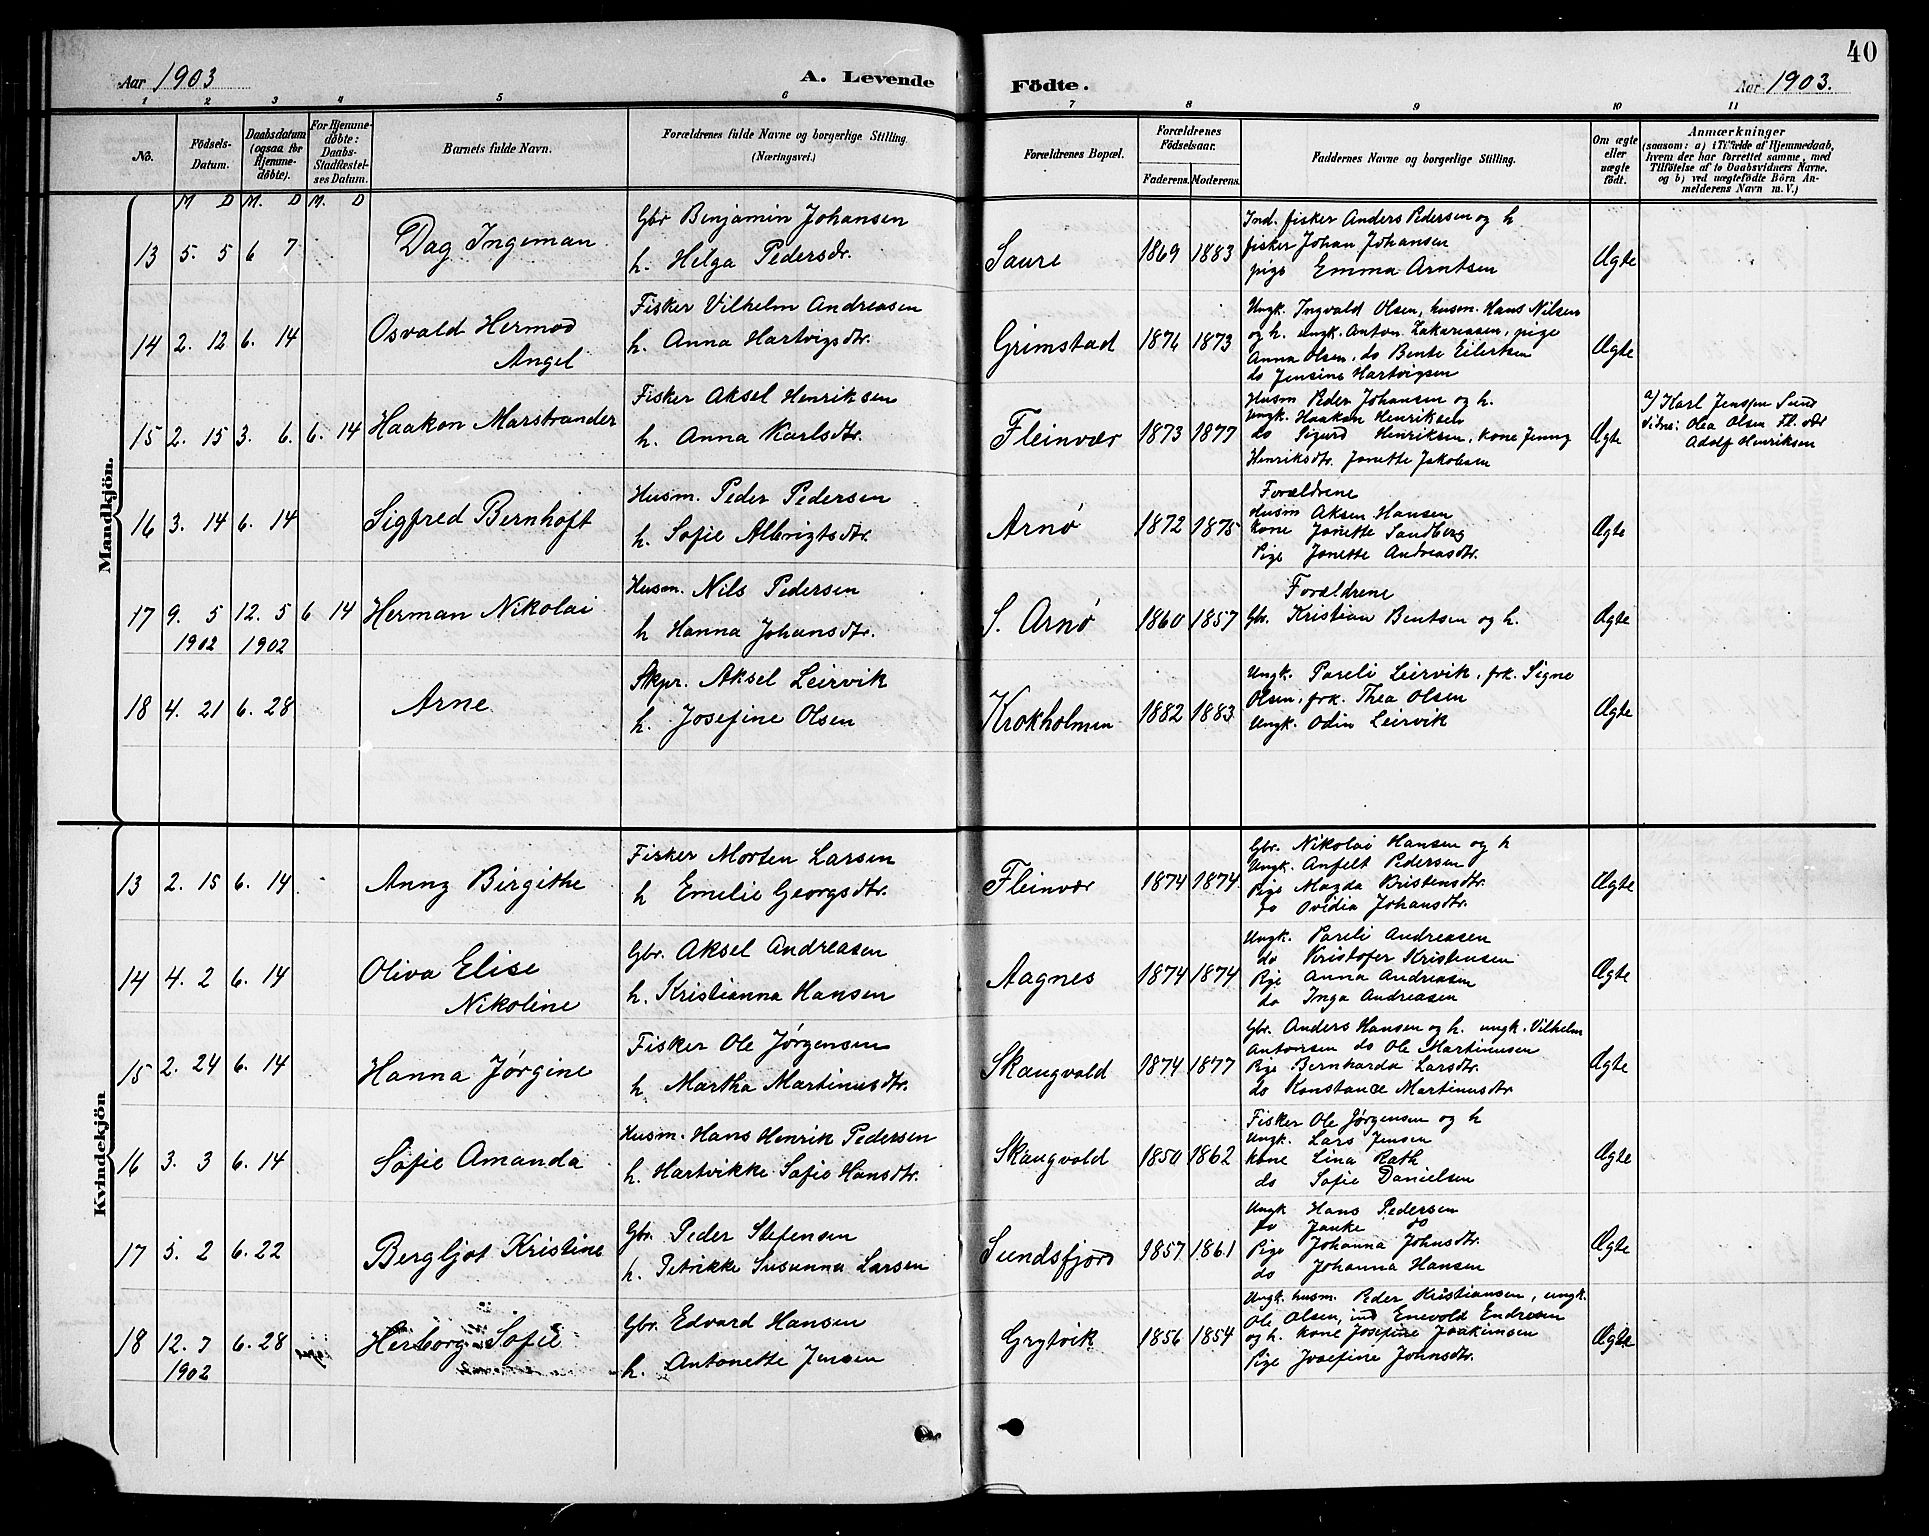 40
Aar 1903
A. Levende
Födte.
Aar 1903.
1 2 3 4 5 6 7 8 9 10 11
No.
Födsels-Datum.
Daabsdatum (ogsaa for Hjemmedöbte).
For Hjemmedöbte: Daabs-Stadfæstelses Datum.
Barnets fulde Navn.
Forældrenes fulde Navne og borgerlige Stilling. (Næringsvei.)
Forældrenes Bopæl.
Forældrenes Födselsaar.
Faderens. Moderens.
Faddernes Navne og borgerlige Stilling.
Om ægte eller uægte födt.
Anmærkninger
(saasom: a) i Tilfælde af Hjemmedaab, hvem der har forrettet samme, med Tilföielse af to Daabsvidners Navne, og b) ved uægtefödte Börn Anmelderens Navn m. V.)
M D M. D M. D
Mandkjön.
13 5. 5 6 7
Dag Ingeman
Gbr Benjamin Johansen
h. Helga Pedersdr.
Saure
1869 1883
Ind. fisker Anders Pedersen og h
fisker Johan Johansen
pige Emma Arntsen
Ægte
14 2. 12 6. 14
Osvald Hermod
Angel
Fisker Vilhelm Andreasen
h. Anna Hartvigsdtr.
Grimstad
1876 1873
Ungk. Ingvald Olsen, husm. Hans Nilsen
og h. ungk. Anton Zakariasen, pige
Anna Olsen, do Bente Eilertsen
do Jensine Hartvigsen
Ægte
15 2. 15 3. 6. 6. 14
Haakon Marstrander
Fisker Aksel Henriksen
h. Anna Karlsdtr.
Fleinvær
1873 1877
Husm Peder Johansen og h.
Ungk. Haakon Henriksen
do Sigurd Henriksen, kone Jenny
Henriksdtr. Janette Jakobsen
Ægte
a) Karl Jensen Sund
vidne: Olea Olsen Fl. vær
Adolf Henriksen
16 3. 14 6. 14
Sigfred Bernhoft
Husm. Peder Pedersen
h. Sofie Albrigtsdtr.
Arnø
1872 1875
Forældrene
Husm Aksen Hansen
kone Janette Sandberg
Pige Janette Andreasdtr.
Ægte
17 9. 5 12. 5 6 14
1902 1902
Herman Nikolai
Husm. Nils Pedersen
h Hanna Johansdtr.
S. Arnø
1860 1857
Forældrene
Gbr. Kristian Bentsen og h.
Ægte
18 4. 21 6. 28
Arne
Skpr. Aksel Leirvik
h. Josefine Olsen
Krokholmen
1882 1883
Ungk. Pareli Leirvik, frk. Signe
Olsen, frk. Thea Olsen
Ungk. Odin Leirvik
Ægte
Kvindekjön
13 2. 15 6. 14
Anny Birgithe
Fisker Morten Larsen
h Emelie Georgsdtr.
Fleinvær
1874 1874
Gbr. Nikolai Hansen og h
Ungk. Anfelt Pedersen
Pige Magda Bristensdtr.
do Ovidia Johansdtr.
Ægte
14 4. 2 6. 14
Oliva Elise
Nikoline
Gbr. Aksel Andreasen
h. Kristianna Hansen
Aagnes
1874 1874
Ungk. Pareli Andreasen
do Kristofer Kristensen
Pige Anna Andreasen
do Inga Andreasen
Ægte
15 2. 24 6. 14
Hanna Jørgine
Fisker Ole Jørgensen
h Martha Martinusdtr.
Skaugvold
1874 1877
Gbr. Anders Hansen og h. ungk. Vilhelm
Antonsen do Ole Martinusen
Pige Bernharda Larsdtr.
do Konstance Martinusdtr
Ægte
16 3. 3 6. 14
Sofie Amanda
Husm. Hans Henrik Pedersen
h. Hartvikke Sofie Hansdtr.
Skaugvold
1850 1862
Fisker Ole Jørgensen og h
Ungk. Lars Jensen
Kone Lina Rath
do Sofie Danielsen
Ægte
17 5. 2 6. 22
Bergljot Kristine
Gbr. Peder Stefensen
h. Petrikke Susanna Larsen
Sundsfjord
1857 1861
Ungk Hans Pedersen
do Janke do
Pige Johanna Johnsdtr.
do Johanna Hansen
Ægte
18 12. 7 6. 28
1902
Herborg Sofie
Gbr. Edvard Hansen
h. Antonette Jensen
Grytvik
1856 1854
Ungk. husm. Peder Kristiansen, ungk.
Ole Olsen, ind Enevold Endresen
og h. kone Josefine Joakimsen
Pige Josefine Johnsdtr.
Ægte